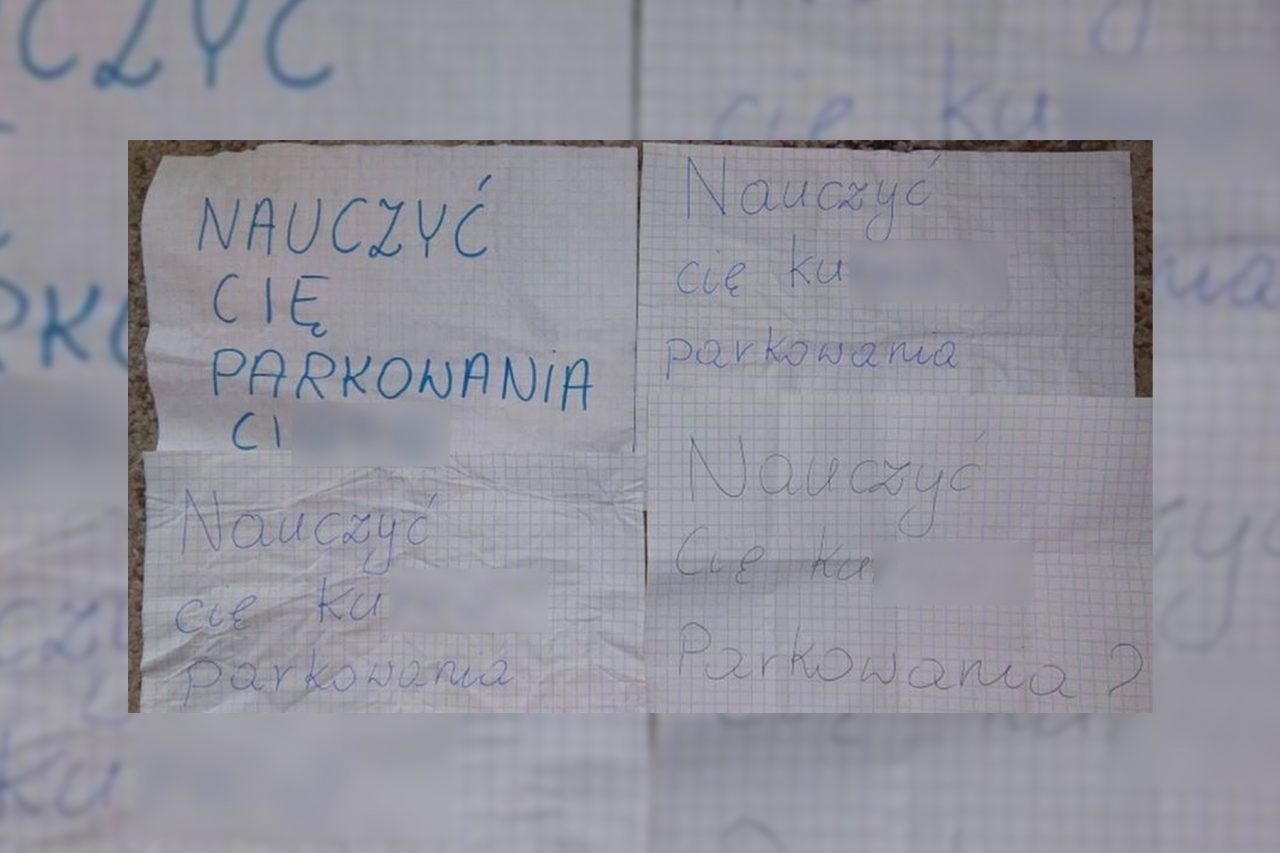 NAUCZYĆ
CIĘ
PARKOWANIA
CI
Nauczyć
cię ku
parkowania
Nauczyć
cię ku
parkowania
Nauczyć
Cię ku
Parkowania?